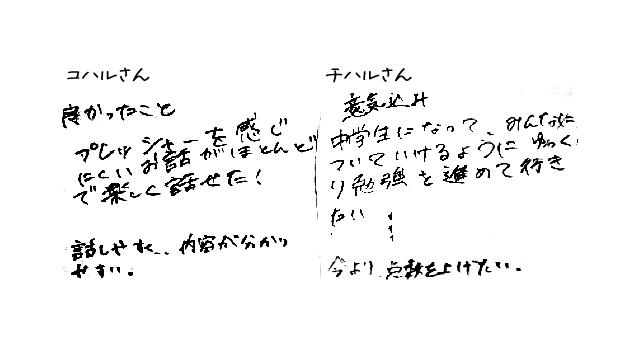 コハルさん
良かったこと
プレッシャーを感じ
にくいお話がほとんど
で楽しく話せた!
話しやすく、内容が分かり
やすい。
チハルさん
意気込み
中学生になって、みんなに
ついていけるようにゆっく
り勉強を進めて行き
たい!
今より点数を上げたい。